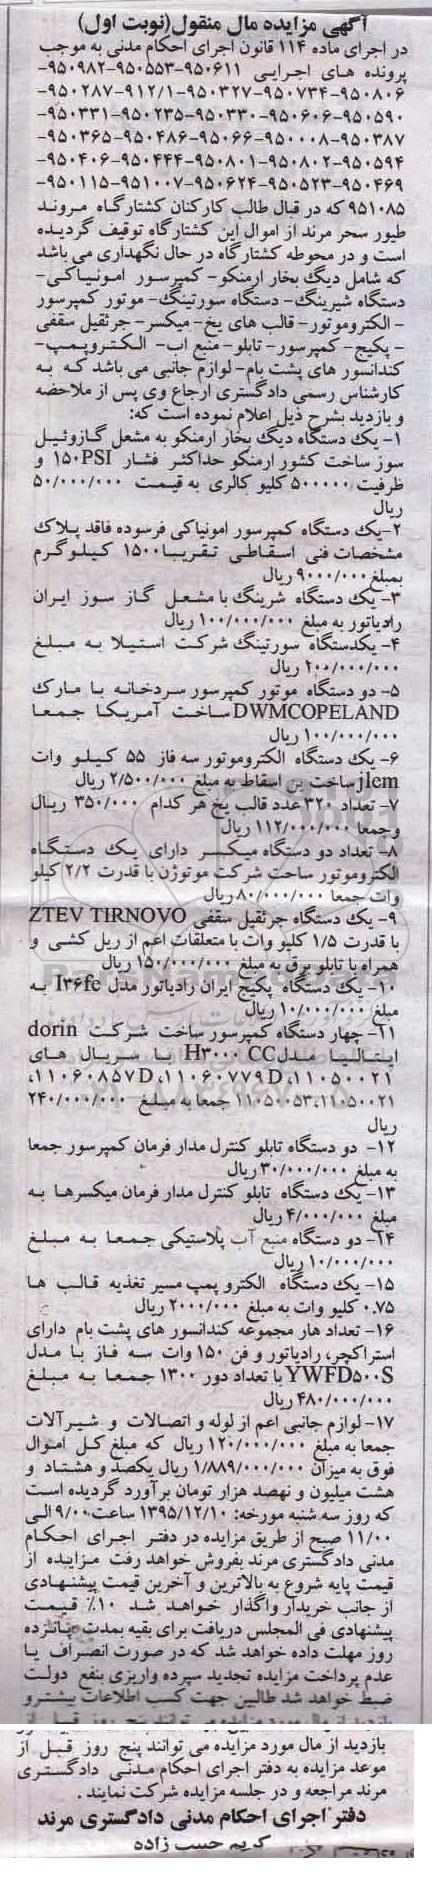 آگهی مزایده مال منقول(نوبت اول)
در اجرای ماده ۱۱۴ قانون اجرای احکام مدنی به موجب
پرونده های اجرایی ۹۵۰۶۱۱-۹۵۰۵۵۳-۹۵۰۹۸۲-
۹۵۰۸۰۶-۹۵۰۷۳۴-۹۵۰۳۲۷-۹۱۲/۱-۹۵۰۲۸۷-
۹۵۰۵۹۰-۹۵۰۶۰۶-۹۵۰۳۳۰-۹۵۰۲۳۵-۹۵۰۳۳۱-
۹۵۰۳۸۷-۹۵۰۰۰۸-۹۵۰۶۶-۹۵۰۴۸۶-۹۵۰۳۶۵-
۹۵۰۵۹۴-۹۵۰۸۰۲-۹۵۰۸۰۱-۹۵۰۴۴۴-۹۵۰۴۰۶-
۹۵۰۴۶۹-۹۵۰۵۲۳-۹۵۰۶۲۴-۹۵۱۰۰۷-۹۵۰۱۱۵-
۹۵۱۰۸۵ که در قبال طالب کارکنان کشتارگاه مروند
طیور سحر مرند از اموال این کشتارگاه توقیف گردیده
است و در محوطه کشتارگاه در حال نگهداری می باشد
که شامل دیگ بخار ارمنکو- کمپرسور امونیاکی-
دستگاه شیرینگ- دستگاه سورتینگ- موتور کمپرسور
- الکتروموتور- قالب های یخ- میکسر- جرثقیل سقفی
- پکیج- کمپرسور- تابلو- منبع اب- الکتروپمپ-
کندانسور های پشت بام- لوازم جانبی می باشد که به
کارشناس رسمی دادگستری ارجاع وی پس از ملاحضه
و بازدید بشرح ذیل اعلام نموده است که:
۱- یک دستگاه دیگ بخار ارمنکو به مشعل گازوئیل
سوز ساخت کشور ارمنکو حداکثر فشار ۱۵۰PSI و
ظرفیت ۵۰۰۰۰۰ کلیو کالری به قیمت ۵۰/۰۰۰/۰۰۰
ریال
۲-یک دستگاه کمپرسور امونیاکی فرسوده فاقد پلاک
مشخصات فنی اسقاطی تقریبا ۱۵۰۰ کیلوگرم
بمبلغ ۹۰۰۰/۰۰۰ ریال
۳- یک دستگاه شرینگ با مشعل گاز سوز ایران
رادیاتور به مبلغ ۱۰۰/۰۰۰/۰۰۰ ریال
۴- یکدستگاه سورتینگ شرکت استیلا به مبلغ
۲۰۰/۰۰۰/۰۰۰ ریال
۵- دو دستگاه موتور کمپرسور سردخانه با مارک
DWMCOPELAND ساخت آمریکا جمعا
۱۰۰/۰۰۰/۰۰۰ ریال
۶- یک دستگاه الکتروموتور سه فاز ۵۵ کیلو وات
jlem ساخت اسقاط به مبلغ ۲/۵۰۰/۰۰۰ ریال
۷- تعداد ۳۲۰ عدد قالب یخ هر کدام ۳۵۰/۰۰۰ ریال
وجمعا ۱۱۲/۰۰۰/۰۰۰ ریال
۸- تعداد دو دستگاه میکسر دارای یک دستگاه
الکتروموتور ساخت شرکت موتوژن با قدرت ۲/۲ کیلو
وات جمعا ۸۰/۰۰۰/۰۰۰ریال
۹- یک دستگاه جرثقیل سقفی ZTEV TIRNOVO
با قدرت ۱/۵ کلیو وات با متعلقات اعم از ریل کشی و
همراه با تابلو برق به مبلغ ۱۵۰/۰۰۰/۰۰۰ ریال
۱۰- یک دستگاه پکیج ایران رادیاتور مدل I۳۶fc به
مبلغ ۱۰/۰۰۰/۰۰۰ ریال
۱۱- چهار دستگاه کمپرسور ساخت شرکت dorin
ایتالیا مدل H۳۰۰۰ CC با سریال های
۱۱۰۵۰۰۲۱، ۱۱۰۶۰۷۷۹D، ۱۱۰۶۰۸۵۷D،
۱۱۰۵۰۰۲۱،۱۱۰۵۰۰۵۳ جمعا به مبلغ ۲۴۰/۰۰۰/۰۰۰
ریال
۱۲- دو دستگاه تابلو کنترل مدار فرمان کمپرسور جمعا
به مبلغ ۳۰/۰۰۰/۰۰۰ ریال
۱۳- یک دستگاه تابلو کنترل مدار فرمان میکسرها به
مبلغ ۴/۰۰۰/۰۰۰ ریال
۱۴- دو دستگاه منبع آب پلاستیکی جمعا به مبلغ
۱۰/۰۰۰/۰۰۰ ریال
۱۵- یک دستگاه الکترو پمپ مسیر تغذیه قالب ها
۰.۷۵ کلیو وات به مبلغ ۲۰۰۰/۰۰۰ ریال
۱۶- تعداد هار مجموعه کندانسور های پشت بام دارای
استراکچر، رادیاتور و فن ۱۵۰ وات سه فاز با مدل
YWFD۵۰۰S با تعداد دور ۱۳۰۰ جمعا به مبلغ
۴۸۰/۰۰۰/۰۰۰ریال
۱۷- لوازم جانبی اعم از لوله و اتصالات و شیرآلات
جمعا به مبلغ ۱۲۰/۰۰۰/۰۰۰ ریال که مبلغ کل اموال
فوق به میزان ۱/۸۸۹/۰۰۰/۰۰۰ ریال یکصد و هشتاد و
هشت میلیون و نهصد هزار تومان برآورد گردیده است
که روز سه شنبه مورخه: ۱۳۹۵/۱۲/۱۰ ساعت ۹/۰۰ الی
۱۱/۰۰ صبح از طریق مزایده در دفتر اجرای احکام
مدنی دادگستری مرند بفروش خواهد رفت مزایده از
قیمت پایه شروع به بالاترین و آخرین قیمت پیشنهادی
از جانب خریدار واگذار خواهد شد ۱۰٪ قیمت
پیشنهادی فی المجلس دریافت برای بقیه بمدت پانزده
روز مهلت داده خواهد شد که در صورت انصراف یا
عدم پرداخت مزایده تجدید سپرده واریزی بنفع دولت
ضبط خواهد شد طالبین جهت کسب اطلاعات بیشتر و
بازدید از مال مورد مزایده می توانند پنج روز قبل از
موعد مزایده به دفتر اجرای احکام مدنی دادگستری
مرند مراجعه و در جلسه مزایده شرکت نمایند .
دفتر اجرای احکام مدنی دادگستری مرند
کریم حبیب زاده